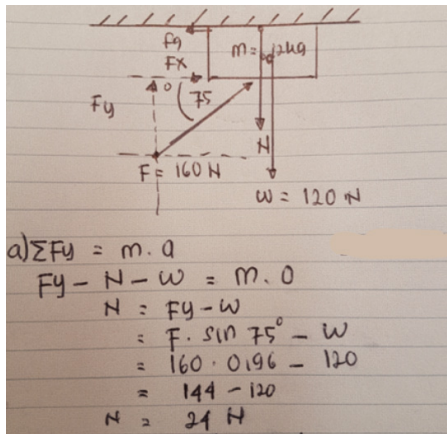 fg
m = 12kg
Fx
Fy
75
N
F = 160 N
W = 120 N
a) ΣFy = m . a
Fy - N - W = m . 0
N = Fy - W
= F . sin 75° - W
= 160 . 0,96 - 120
= 144 - 120
N = 24 N